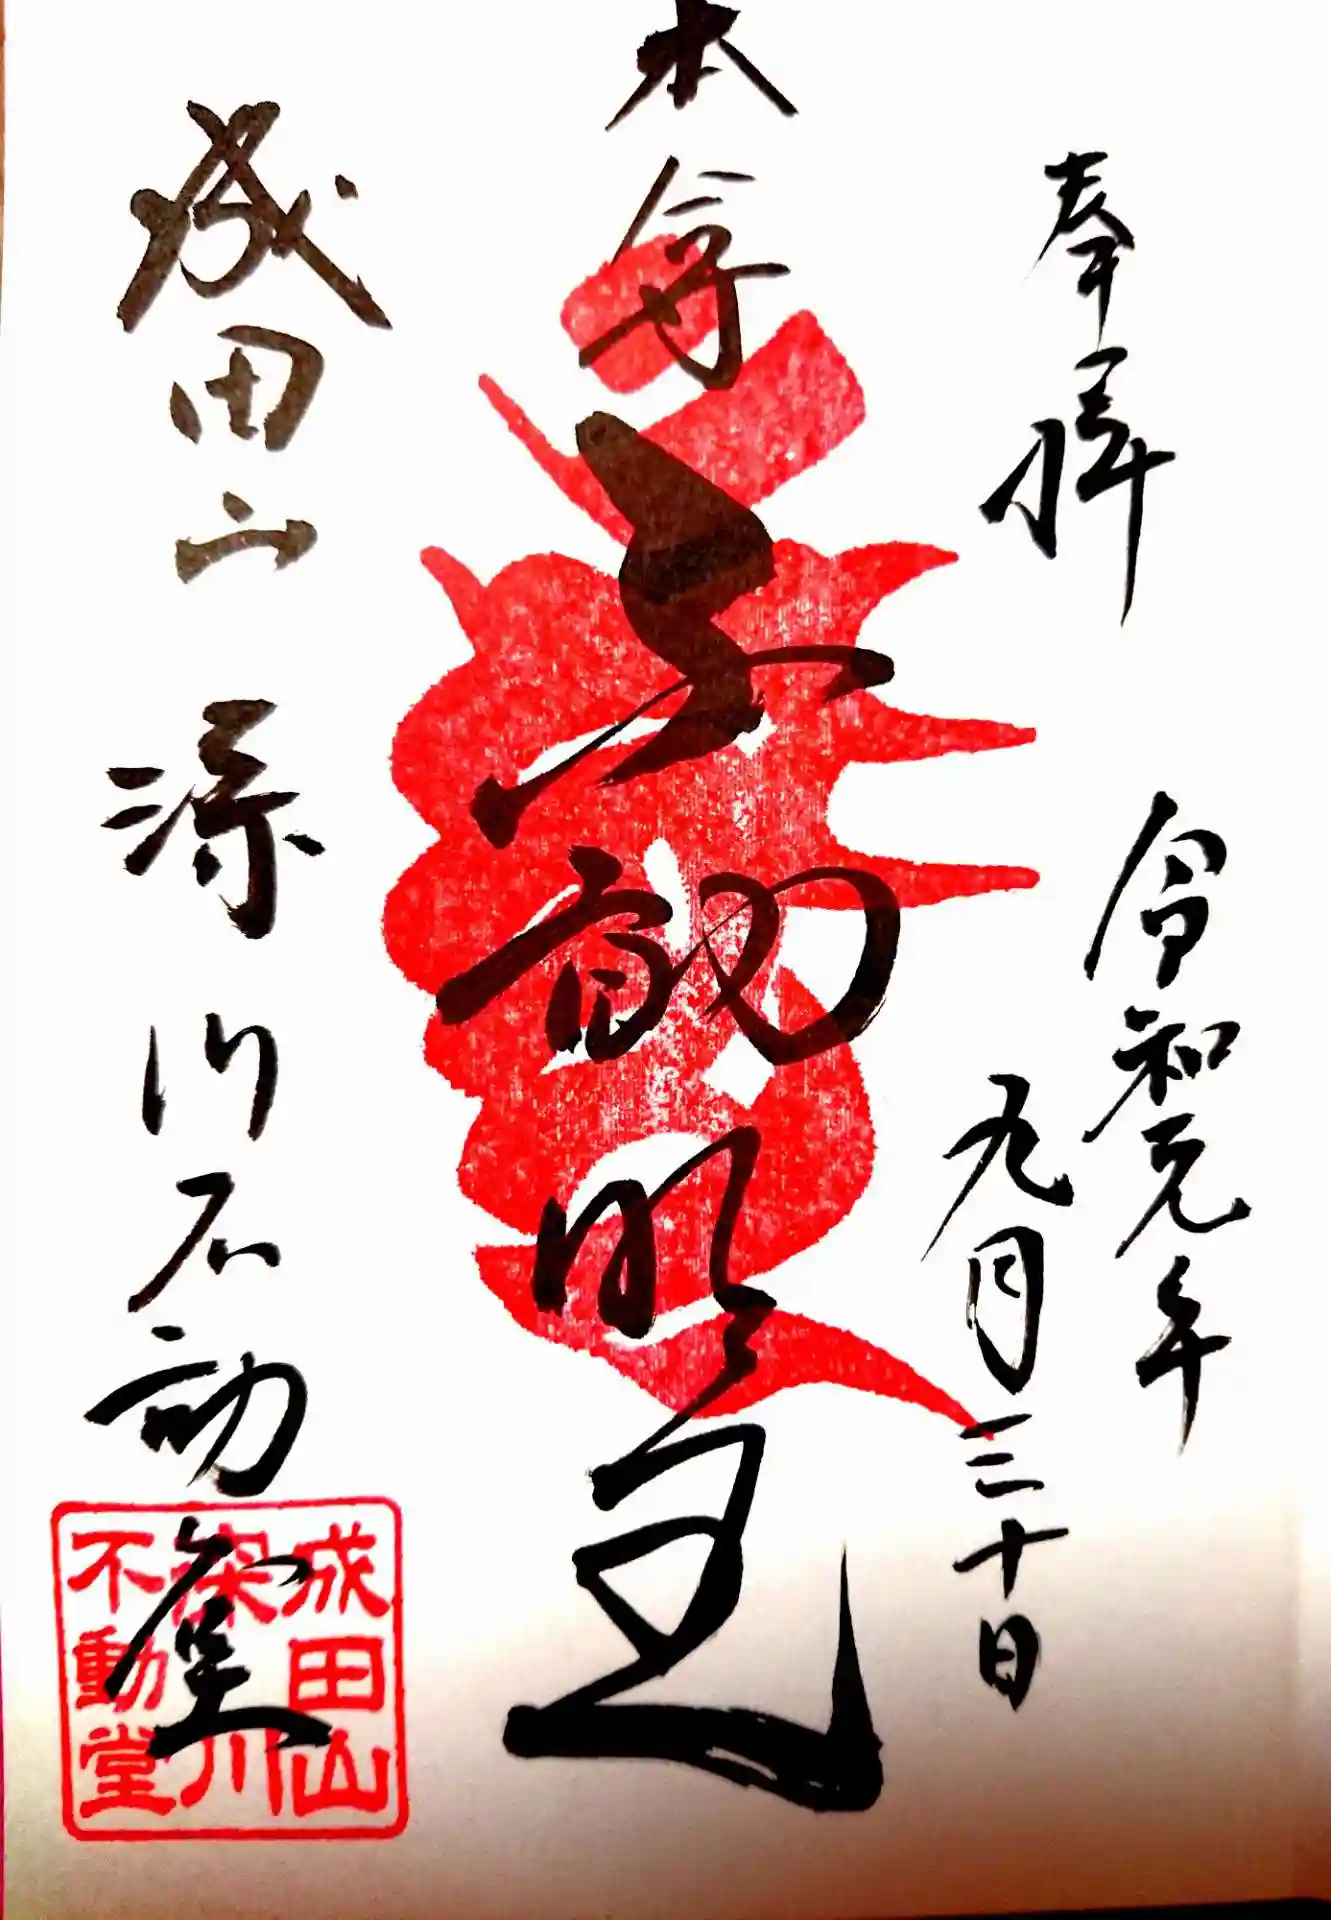 奉拝
令和元年
九月三十日
本尊
不動明王
成田山
深川不動堂
成田山
深川
不動堂